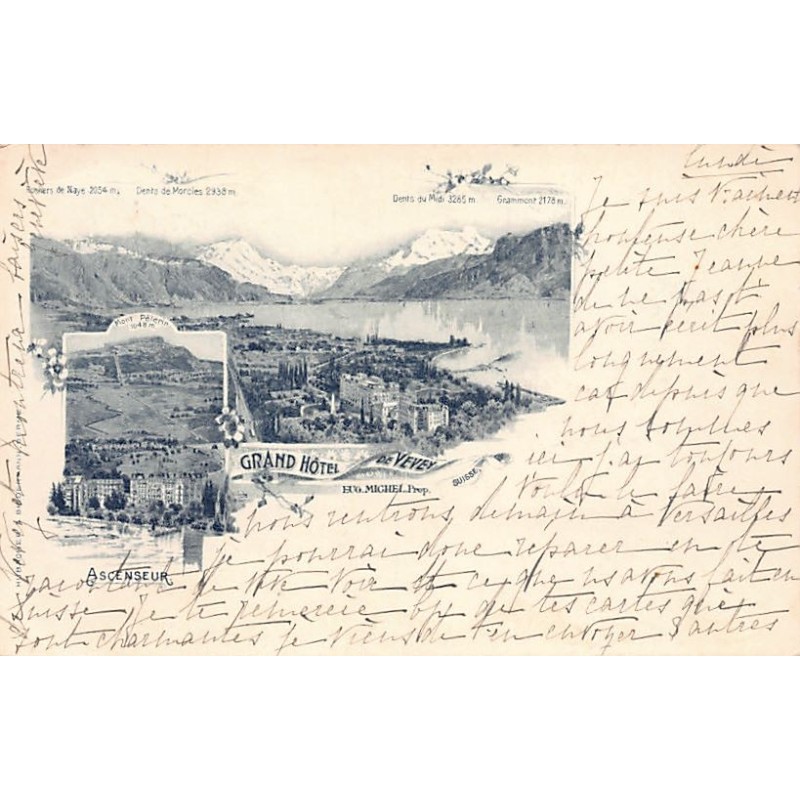 Rochers de Naye 2054 m. Dents de Morcles 2938 m.
Dents du Midi 3285 m. Grammont 2178 m.
Mont Pélerin
1048 m.
GRAND HÔTEL DE VEVEY
SUISSE
EUG. MICHEL, Prop.
ASCENSEUR
Lundi
Je suis
honteuse chère
petite Jeanne
de ne pas t'
avoir écrit plus
longuement
car depuis que
nous sommes
ici j'ai toujours
voulu le faire
nous rentrons demain à Versailles
je pourrai donc réparer en te
racontant de vive voix tt ce que ns avons fait en
Suisse Je te remercie bp de tes cartes qui
sont charmantes je viens de t'en envoyer 3 autres
baisers